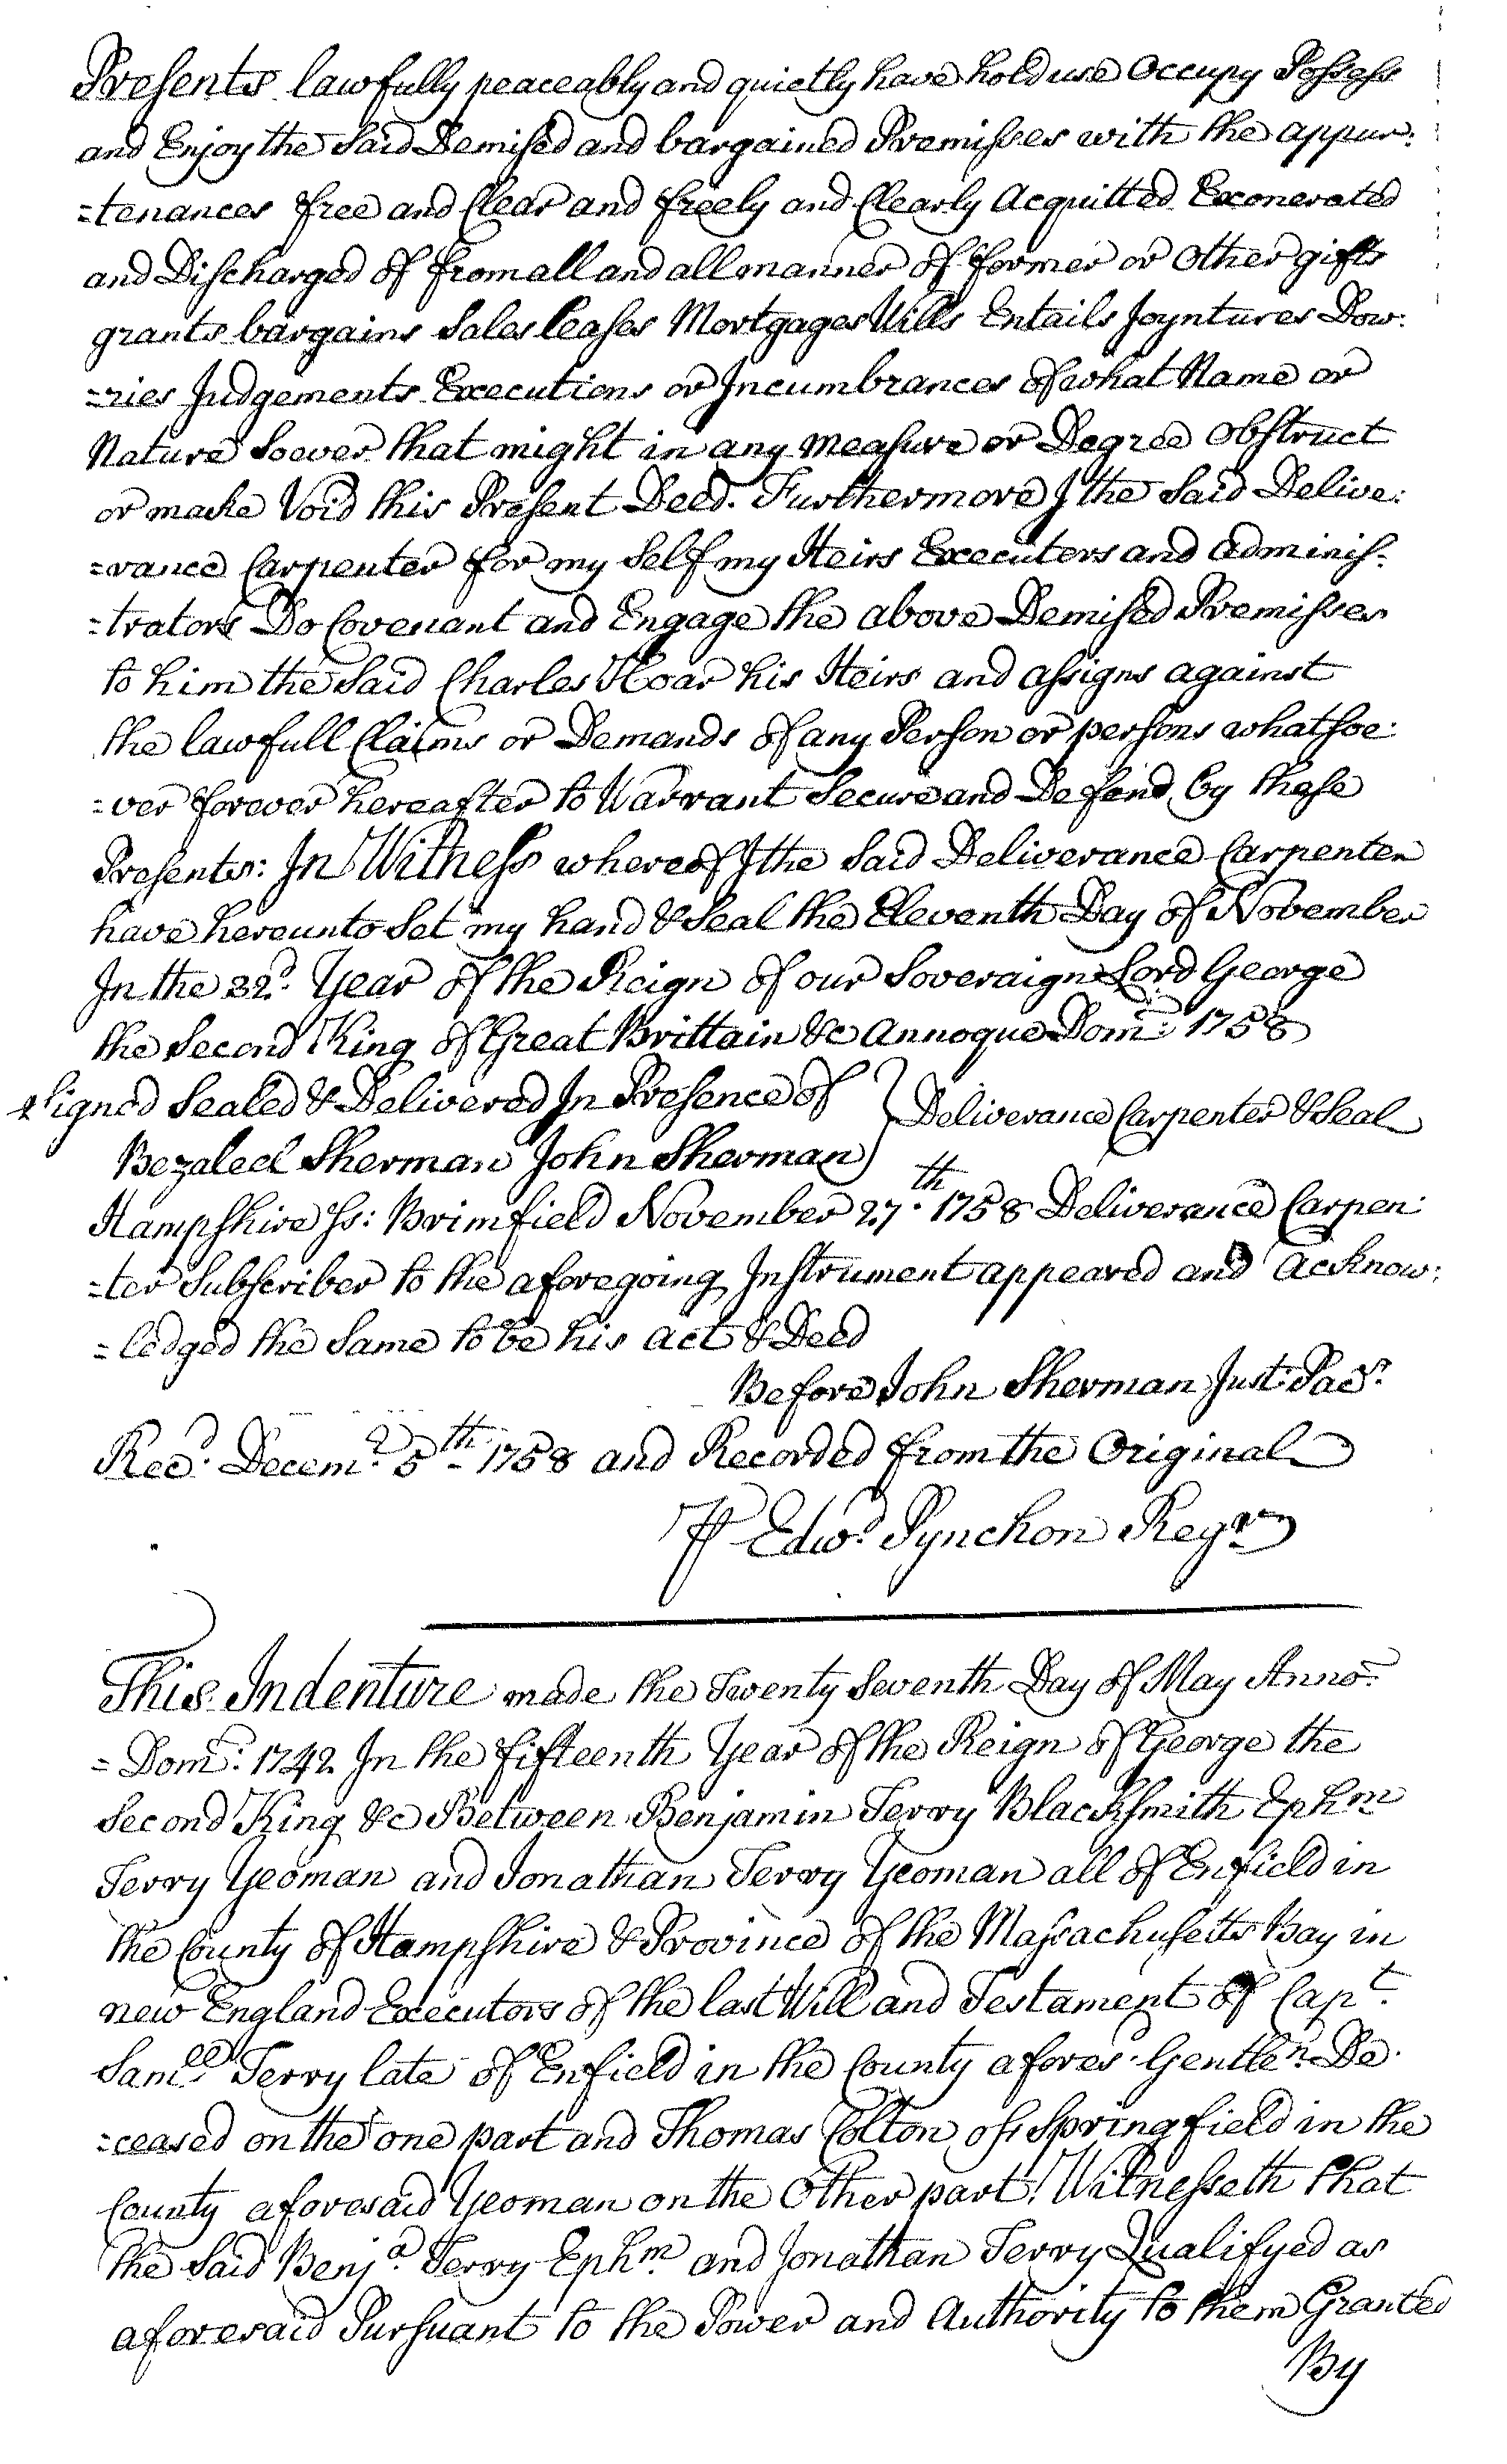 Presents lawfully peaceably and quietly have hold use Occupy Possess
and Enjoy the Said Demised and bargained Premisses with the appur:
=tenances free and Clear and freely and Clearly Acquitted Exonerated
and Discharged of from all and all manner of former or Other gifts
grants bargains Sales leases Mortgages Wills Entails Joyntures Dow:
=ries Judgements Executions or Incumbrances of what Name or
Nature Soever that might in any measure or Degree Obstruct
or make Void this Present Deed. Furthermore I the Said Delive:
=rance Carpenter for my Self my Heirs Executers and adminis:
=trators Do Covenant and Engage the above Demised Premisses
to him the Said Charles Hoar his Heirs and assigns against
the lawfull Claims or Demands of any Person or persons whatsoe:
=ver forever hereafter to Warrant Secure and Defend by these
Presents: In Witness whereof I the Said Deliverance Carpenter
have hereunto Set my hand & Seal the Eleventh Day of November
In the 32d. Year of the Reign of our Soveraign Lord George
the Second King of Great Brittain &c Annoque Dom: 1758
Signed Sealed & Delivered In Presence of } Deliverance Carpenter & Seal
Bezaleel Sherman John Sherman
Hampshire Ss: Brimfield November 27th. 1758 Deliverance Carpen:
=ter Subscriber to the aforegoing Instrument appeared and Acknow:
=ledged the Same to be his act & Deed
Before John Sherman Just: Pacs.
Recd. Decemr. 5th 1758 and Recorded from the Original
P Edwd. Pynchon Regr
This Indenture made the Twenty Seventh Day of May Anno
=Dom: 1742 In the fifteenth Year of the Reign of George the
Second King &c Between Benjamin Terry Blacksmith Ephm
Terry Yeoman and Jonathan Terry Yeoman all of Enfield in
the County of Hampshire & Province of the Massachusetts Bay in
new England Executors of the last Will and Testament of Capt.
Samll. Terry late of Enfield in the County afores.d Gentlen. De:
=ceased on the one part and Thomas Colton of Springfield in the
County aforesaid Yeoman on the Other part: Witnesseth that
the Said Benja. Terry Ephm. and Jonathan Terry Qualifyed as
aforesaid Pursuant to the Power and Authority to them Granted
By